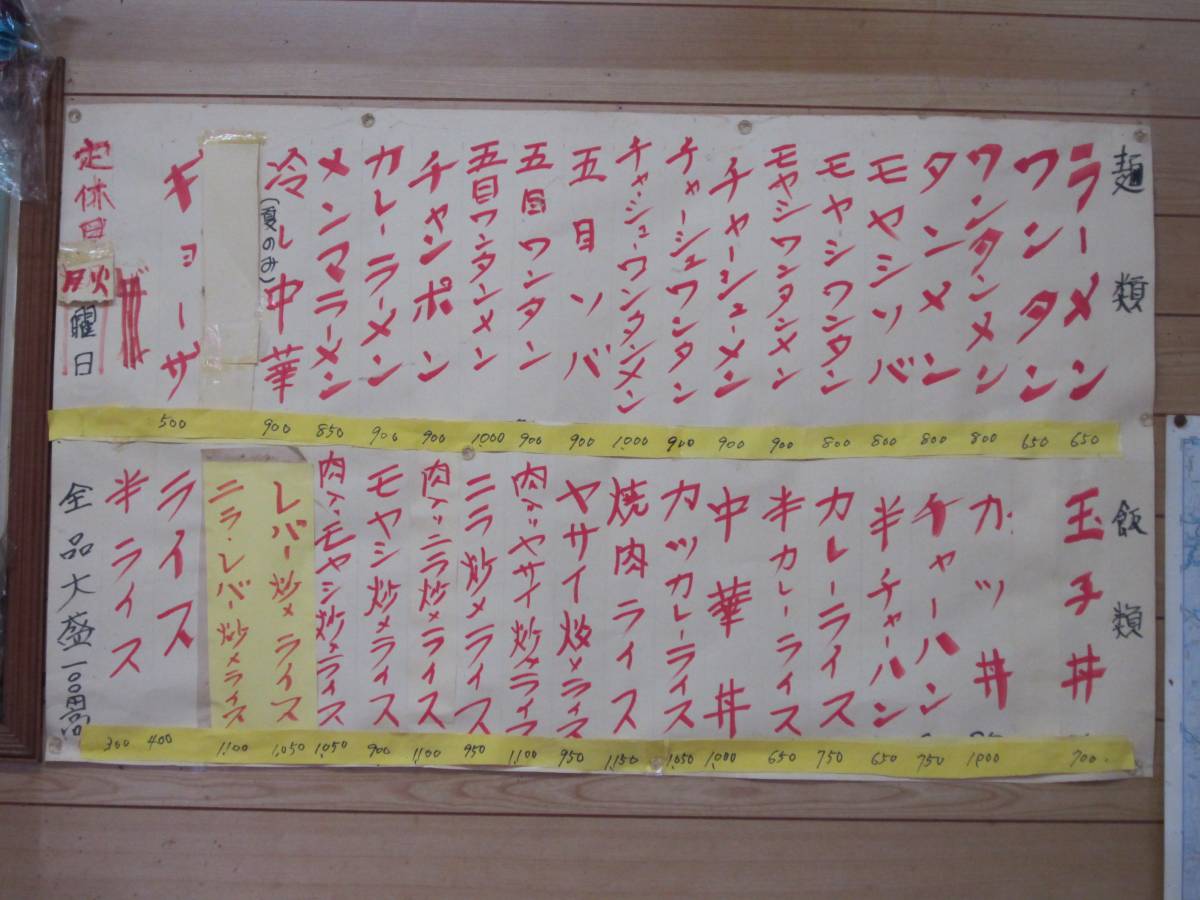 麺類
ラーメン
650
ワンタン
650
ワンタンメン
800
タンメン
800
モヤシソバ
800
モヤシワンタン
800
モヤシワンタンメン
900
チャーシューメン
900
チャーシュウワンタン
900
チャーシューワンタンメン
1000
五目ソバ
900
五目ワンタン
900
五目ワンタンメン
1000
チャンポン
900
カレーラーメン
900
メンマラーメン
850
冷し中華
(夏のみ)
900
ギョーザ
500
定休日
火
曜日
飯類
玉子丼
700
カツ丼
1000
チャーハン
750
半チャーハン
650
カレーライス
750
半カレーライス
650
中華丼
1000
カツカレーライス
1050
焼肉ライス
1150
ヤサイ炒メライス
950
肉入ヤサイ炒メライス
1100
ニラ炒メライス
950
肉入ニラ炒メライス
1100
モヤシ炒メライス
900
肉入モヤシ炒メライス
1050
レバー炒メライス
1050
ニラ・レバー炒メライス
1100
ライス
400
半ライス
300
全品大盛一〇〇円高